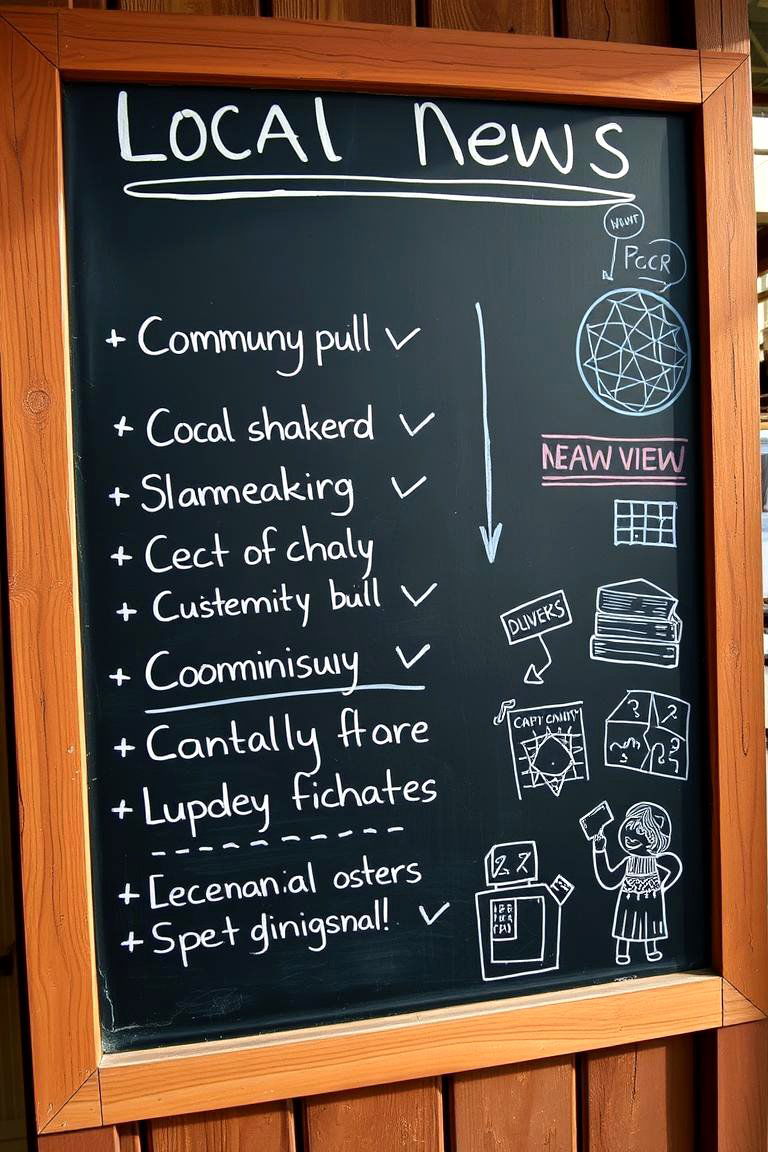 LOCAL News
+ Communy pull ✓
+ Cocal shakerd ✓
+ Slarmeakirg ✓
+ Cect of chaly
+ Custemity bull ✓
+ Coorminisuy ✓
+ Cantally flore
+ Lupdey fichates
+ Eecenan.ial osters
+ Spet ginigsnal! ✓
PCCR
NEAW VIEW
DLIVERS